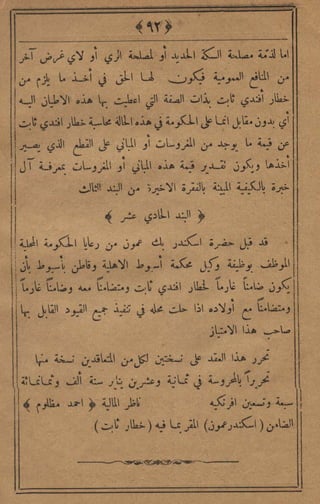 ﴿ ٩٢ ﴾
اما لذمة مصلحة السكة الحديد أو لمصلحة الري أو لاي غرض آخر
من المنافع العمومية فيكون لها الحق في أخذ ما يلزم من
خطار أفندي ثابت بذات الصفة التي اعطيت بها هذه الاطيان اليه
أي بدون مقابل انما على الحكومة في هذه الحالة محاسبة خطار افندي ثابت
عن قيمة ما يوجد من المغروسات أو المباني على القطع الذي يصير
أخذها ويكون تقدير قيمة هذه المباني أو المغروسات بمعرفة آل
خبرة بالكيفية المبينة بالفقرة الاخيرة من البند الثالث
﴿ البند الحادي عشر ﴾
قد قبل حضرة اسكندر بك عمون من رعايا الحكومة المحلية
الموظف بوظيفة وكيل محكمة أسيوط الاهلية وقاطن بأسيوط بأن
يكون ضامناً غارماً لخطار افندي ثابت ومتضامناً معه وضامناً غارماً
ومتضامناً مع أولاده اذا حلت محله في تنفيذ جميع القيود القابل بها
صاحب هذا الامتياز
تحرر هذا العقد على نسختين لكل من المتعاقدين نسخة منها
تحريراً بالمحروسة في ثمانية وعشرين يناير سنة ألف وثمانمائة
سبعة وتسعين افرنكيه ناظر المالية ﴿ احمد مظلوم ﴾
الضامن (اسكندر عمون) المقر بما فيه (خطار ثابت)